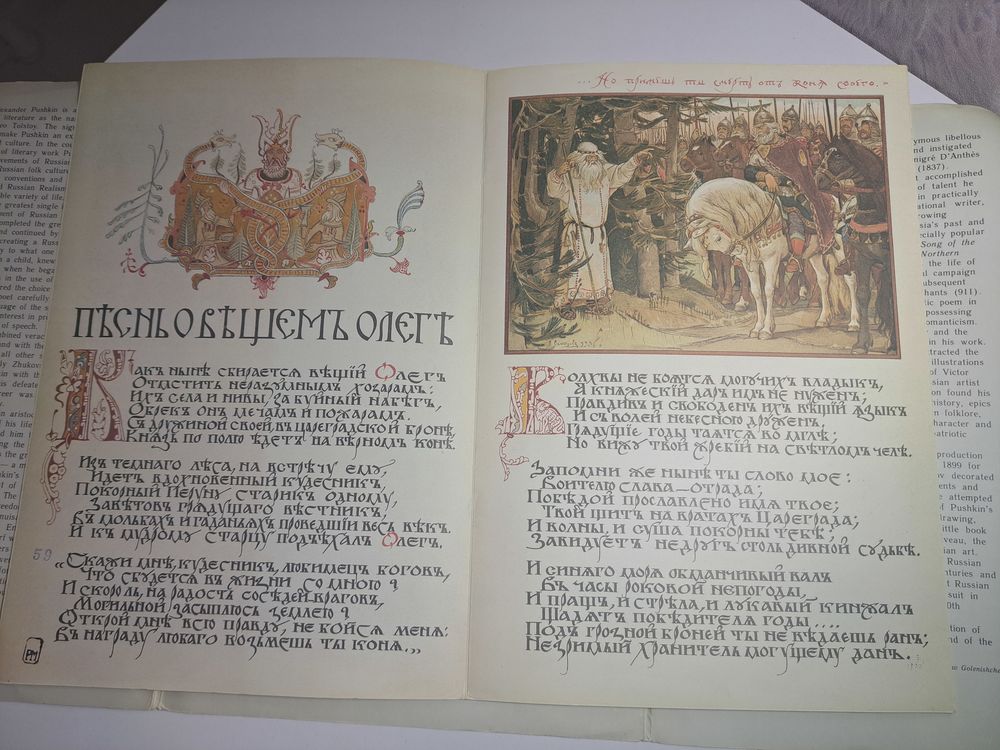 exander Pushkin is a
literature as the na
eo Tolstoy. The sig
make Pushkin an ex
culture. In the co
of literary work Pu
vements of Russian
ussian folk culture
conventions and
Russian Realism
ble variety of life
e greatest single
ment of Russian
ompleted the gre
nd continued by
creating a Russ
y to what one
a child, knew
when he bega
in the use of
red the choice
poet carefully
uage of the s
nterest in pr
of speech.
mbined verac
nd with the
all other s
ly Zhukov
n with the
is defeate
eer was
ПѢСНЬ О ВѢЩЕМЪ ОЛЕГѢ
КАКЪ НЫНѢ СБИРАЕТСЯ ВѢЩІЙ ОЛЕГЪ
ОТМСТИТЬ НЕРАЗУМНЫМЪ ХОЗАРАМЪ:
ИХЪ СЕЛА И НИВЫ, ЗА БУЙНЫЙ НАБѢГЪ,
ОБРЕКЪ ОНЪ МЕЧАМЪ И ПОЖАРАМЪ.
СЪ ДРУЖИНОЙ СВОЕЙ, ВЪ ЦАРЕГРАДСКОЙ БРОНѢ,
КНЯЗЬ ПО ПОЛЮ ѢДЕТЪ НА ВѢРНОМЪ КОНѢ.
ИЗЪ ТЕМНАГО ЛѢСА, НА ВСТРѢЧУ ЕМУ,
ИДЕТЪ ВДОХНОВЕННЫЙ КУДЕСНИКЪ,
ПОКОРНЫЙ ПЕРУНУ СТАРИКЪ ОДНОМУ,
ЗАВѢТОВЪ ГРЯДУЩАГО ВѢСТНИКЪ,
ВЪ МОЛЬБАХЪ И ГАДАНЬЯХЪ ПРОВЕДШІЙ ВЕСЬ ВѢКЪ.
И КЪ МУДРОМУ СТАРЦУ ПОДЪѢХАЛЪ ОЛЕГЪ.
59
„СКАЖИ МНѢ, КУДЕСНИКЪ, ЛЮБИМЕЦЪ БОГОВЪ,
ЧТО СБУДЕТСЯ ВЪ ЖИЗНИ СО МНОЮ?
И СКОРО ЛЬ, НА РАДОСТЬ СОСѢДЕЙ ВРАГОВЪ,
МОГИЛЬНОЙ ЗАСЫПЛЮСЬ ЗЕМЛЕЮ?
ОТКРОЙ МНѢ ВСЮ ПРАВДУ, НЕ БОЙСЯ МЕНЯ:
ВЪ НАГРАДУ ЛЮБАГО ВОЗЬМЕШЬ ТЫ КОНЯ.„
РМ
... Но примешь ты смерть отъ коня своего. –
ВОЛХВЫ НЕ БОЯТСЯ МОГУЧИХЪ ВЛАДЫКЪ,
А КНЯЖЕСКІЙ ДАРЪ ИМЪ НЕ НУЖЕНЪ;
ПРАВДИВЪ И СВОБОДЕНЪ ИХЪ ВѢЩІЙ ЯЗЫКЪ
И СЪ ВОЛЕЙ НЕБЕСНОЮ ДРУЖЕНЪ.
ГРЯДУЩІЕ ГОДЫ ТАЯТСЯ ВО МГЛѢ;
НО ВИЖУ ТВОЙ ЖРЕБІЙ НА СВѢТЛОМЪ ЧЕЛѢ.
ЗАПОМНИ ЖЕ НЫНѢ ТЫ СЛОВО МОЕ:
ВОИТЕЛЮ СЛАВА – ОТРАДА;
ПОБѢДОЙ ПРОСЛАВЛЕНО ИМЯ ТВОЕ;
ТВОЙ ЩИТЪ НА ВРАТАХЪ ЦАРЕГРАДА;
И ВОЛНЫ, И СУША ПОКОРНЫ ТЕБѢ;
ЗАВИДУЕТЪ НЕДРУГЪ СТОЛЬ ДИВНОЙ СУДЬБѢ.
И СИНЯГО МОРЯ ОБМАНЧИВЫЙ ВАЛЪ
ВЪ ЧАСЫ РОКОВОЙ НЕПОГОДЫ,
И ПРАЩЪ, И СТРѢЛА, И ЛУКАВЫЙ КИНЖАЛЪ
ЩАДЯТЪ ПОБѢДИТЕЛЯ ГОДЫ....
ПОДЪ ГРОЗНОЙ БРОНЕЙ ТЫ НЕ ВѢДАЕШЬ РАНЪ;
НЕЗРИМЫЙ ХРАНИТЕЛЬ МОГУЩЕМУ ДАНЪ.
ymous libellous
nd instigated
migré D'Anthès
(1837).
accomplished
of talent he
in practically
ational writer,
rowing
sia's past and
cially popular
Song of the
Northern
the life of
campaign
ubsequent
hants (911).
tic poem in
omanticism.
and the
in his work.
tracted the
illustrations
of Victor
ssian artist
on found his
history, epics
n folklore,
character and
patriotic
production
1899 for
ow decorated
ents and
attempted
Pushkin's
drawing.
little book
uveau, the
ian art.
Russian
nturies and
t Russian
suit in
0th
tion of
nd of the
w Golenishche